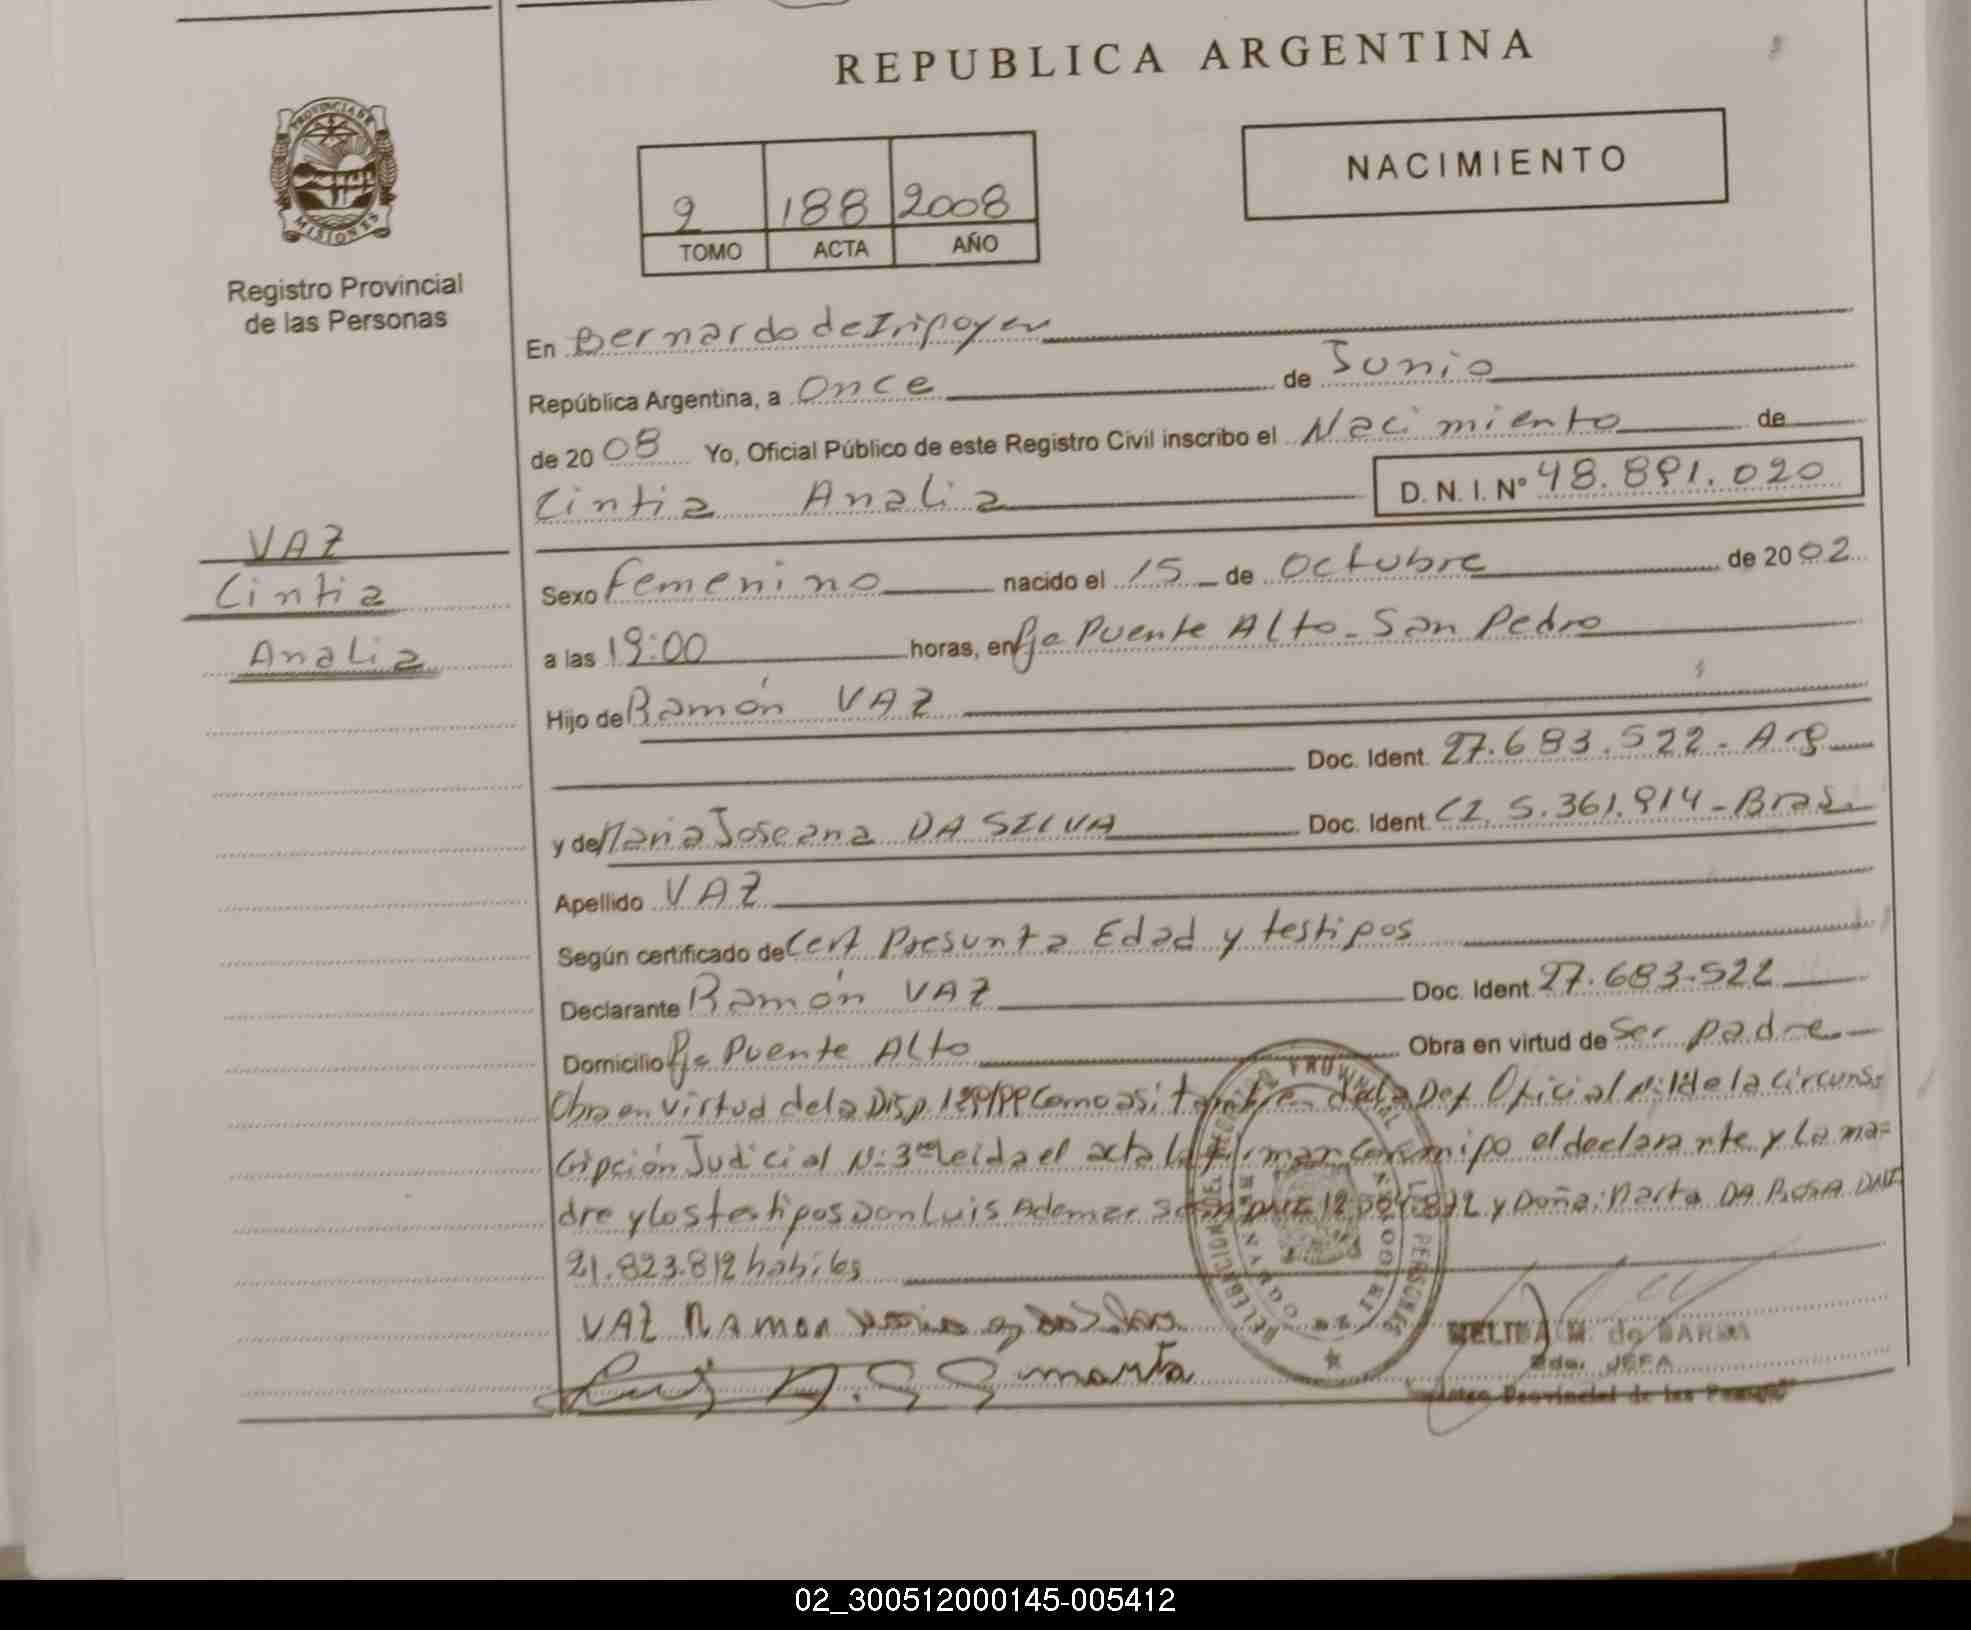 REPUBLICA ARGENTINA
PROVINCIA DE
MISIONES
Registro Provincial
de las Personas
NACIMIENTO
2 188 2008
TOMO ACTA AÑO
En Bernardo de Irigoyen
República Argentina, a Once de Junio
de 2008 Yo, Oficial Público de este Registro Civil inscribo el Nacimiento de
Cintia Analia D. N. I. Nº 48.891.020
VAZ
Cintia
Analia
Sexo Femenino nacido el 15 de Octubre de 2002
a las 19:00 horas, en Pje Puente Alto - San Pedro
Hijo de Ramón VAZ
Doc. Ident. 27.683.522 - Arg
y de Maria Joseana DA SILVA Doc. Ident. CI. 5.361.914 - Bras.
Apellido VAZ
Según certificado de Cert Presunta Edad y testigos
Declarante Ramón VAZ Doc. Ident. 27.683.522
Domicilio Pje Puente Alto Obra en virtud de Ser padre
Obra en virtud de la Disp. Como asi también de la Def Oficial de la Circuns-
cripción Judicial Nº 3 leida el acta la firman conmigo el declarante y la ma=
dre y los testigos Don Luis Ademar y Doña: Marta DA ROSA DNI
21.823.812 hábiles
VAZ Ramon
marta
Pda. JEFA
Provincial de las
02_300512000145-005412